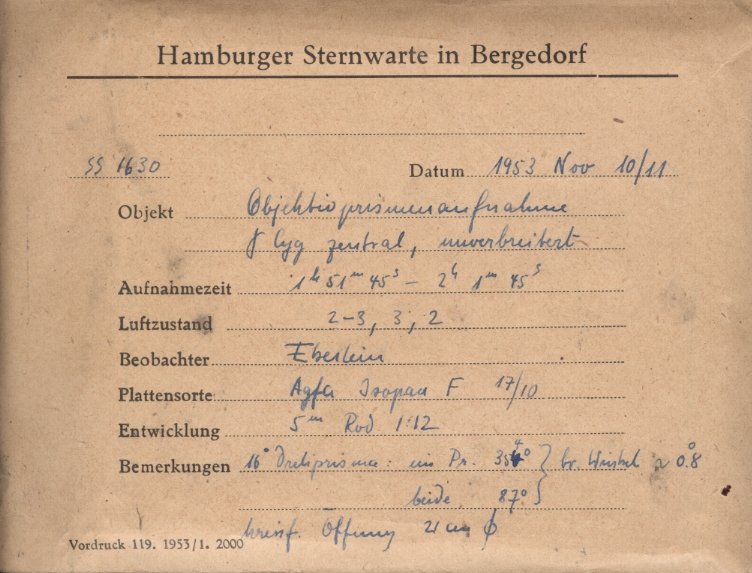 Hamburger Sternwarte in Bergedorf
SS 1630 Datum 1953 Nov 10/11
Objekt Objektivprismenaufnahme
γ Cyg zentral, unverbreitert
Aufnahmezeit 1ʰ 51ᵐ 45ˢ – 2ʰ 1ᵐ 45ˢ
Luftzustand 2–3, 3, 2
Beobachter Eberlein
Plattensorte Agfa Isopan F 17/10
Entwicklung 5ᵐ Rod 1:12
Bemerkungen 16° Drehprisma: ein Pr. } br. Winkel ~ 0.°8
beide 87° }
kreisf. Öffnung 21 cm ϕ
Vordruck 119. 1953/1. 2000